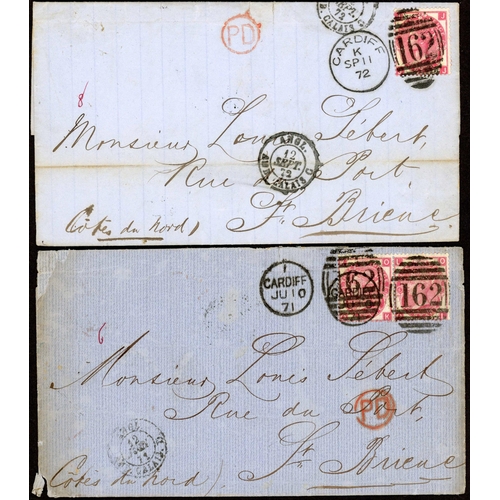 PD
CALAIS
CARDIFF
K
SP 11
72
162
8
Monsieur Louis Sébert,
Rue du Port,
St. Brieuc
(Côtes du Nord)
ANGL.
12
SEPT.
72
AMB. CALAIS C
1
CARDIFF
JU 10
71
CARDIFF
162
6
Monsieur Louis Sébert
Rue du Port,
PD
St. Brieuc
(Côtes du Nord)
ANGL.
12
CALAIS